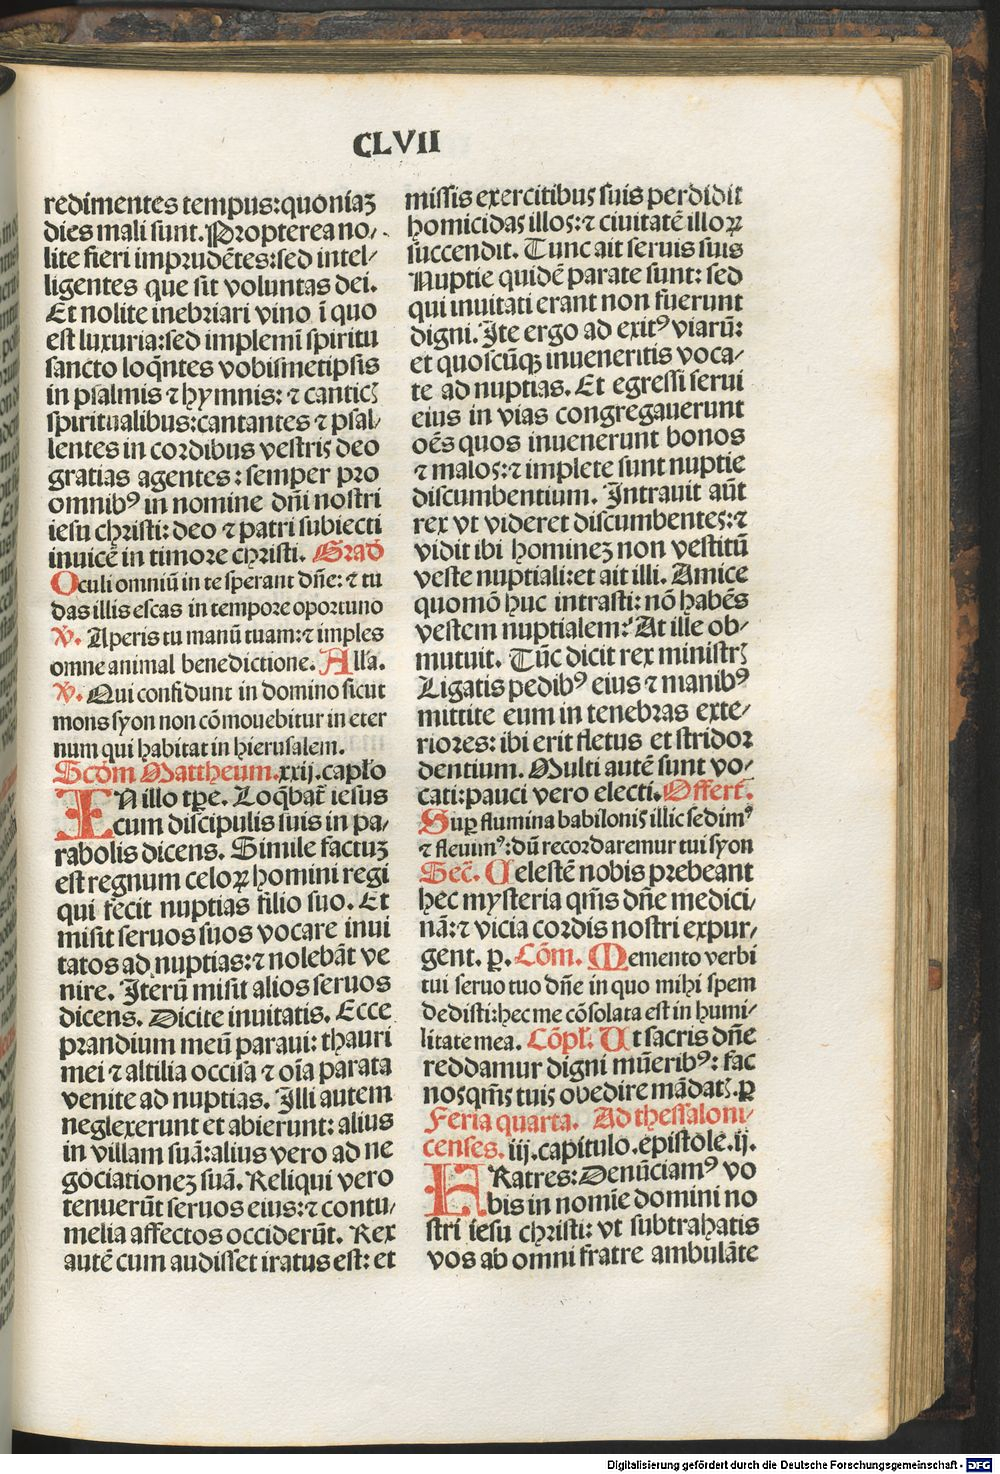 CLVII
redimentes tempus:quoniaꝫ
dies mali sunt. Propterea no/
lite fieri imprudētes:sed intel/
ligentes que sit voluntas dei.
Et nolite inebriari vino ī quo
est luxuria:sed implemī spiritu
sancto loqn̄tes vobismetipsis
in psalmis ⁊ hymnis: ⁊ canticꝭ
spiritualibus:cantantes ⁊ psal/
lentes in cordibus vestris deo
gratias agentes: semper pro
omnibꝰ in nomine dn̄i nostri
iesu christi: deo ⁊ patri subiecti
inuicē in timore christi. Grad̄
Oculi omniū in te sperant dn̄e: ⁊ tu
das illis escas in tempore oportuno
℣. Aperis tu manū tuam:⁊ imples
omne animal benedictione. Alla.
℣. Qui confidunt in domino sicut
mons syon non cōmouebitur in eter
num qui habitat in hierusalem.
Scd̄m Mattheum.xxij.capło
IN illo tꝑe. Loqbat̄ iesus
cum discipulis suis in pa/
rabolis dicens. Simile factuꝫ
est regnum celoꝝ homini regi
qui fecit nuptias filio suo. Et
misit seruos suos vocare inui
tatos ad nuptias:⁊ nolebāt ve
nire. Iterū misit alios seruos
dicens. Dicite inuitatis. Ecce
prandium meū paraui: thauri
mei ⁊ altilia occisa ⁊ oīa parata
venite ad nuptias. Illi autem
neglexerunt et abierunt: alius
in villam suā:alius vero ad ne
gociationeꝫ suā. Reliqui vero
tenuerūt seruos eius:⁊ contu/
melia affectos occiderūt. Rex
autē cum audisset iratus est: et
missis exercitibus suis perdidit
homicidas illos:⁊ ciuitatē illoꝝ
succendit. Tunc ait seruis suis
Nuptie quidē parate sunt: sed
qui inuitati erant non fuerunt
digni. Ite ergo ad exitꝰ viarū:
et quoscūqꝫ inueneritis voca/
te ad nuptias. Et egressi serui
eius in vias congregauerunt
oēs quos inuenerunt bonos
⁊ malos:⁊ implete sunt nuptie
discumbentium. Intrauit aūt
rex vt videret discumbentes:⁊
vidit ibi homineꝫ non vestitū
veste nuptiali:et ait illi. Amice
quomō huc intrasti: nō habēs
vestem nuptialem? At ille ob/
mutuit. Tūc dicit rex ministrꝭ
Ligatis pedibꝰ eius ⁊ manibꝰ
mittite eum in tenebras exte/
riores: ibi erit fletus et stridor
dentium. Multi autē sunt vo/
cati:pauci vero electi. Offert̄.
Suꝑ flumina babilonis illic sedimꝰ
⁊ fleuimꝰ:dū recordaremur tui syon
Sec̄. Celestē nobis prebeant
hec mysteria qm̄s dn̄e medici/
nā:⁊ vicia cordis nostri expur/
gent. ꝑ. Cōm. Memento verbi
tui seruo tuo dn̄e in quo mihi spem
dedisti:hec me cōsolata est in humi/
litate mea. Cōpl̄. Ut sacris dn̄e
reddamur digni mūeribꝰ: fac
nos qm̄s tuis obedire mādatꝭ.ꝑ
Feria quarta. Ad thessaloni/
censes. iij.capitulo.epistole.ij.
FRatres: Denūciamꝰ vo
bis in nomīe domini no
stri iesu christi: vt subtrahatis
vos ab omni fratre ambulāte
Digitalisierung gefördert durch die Deutsche Forschungsgemeinschaft - DFG